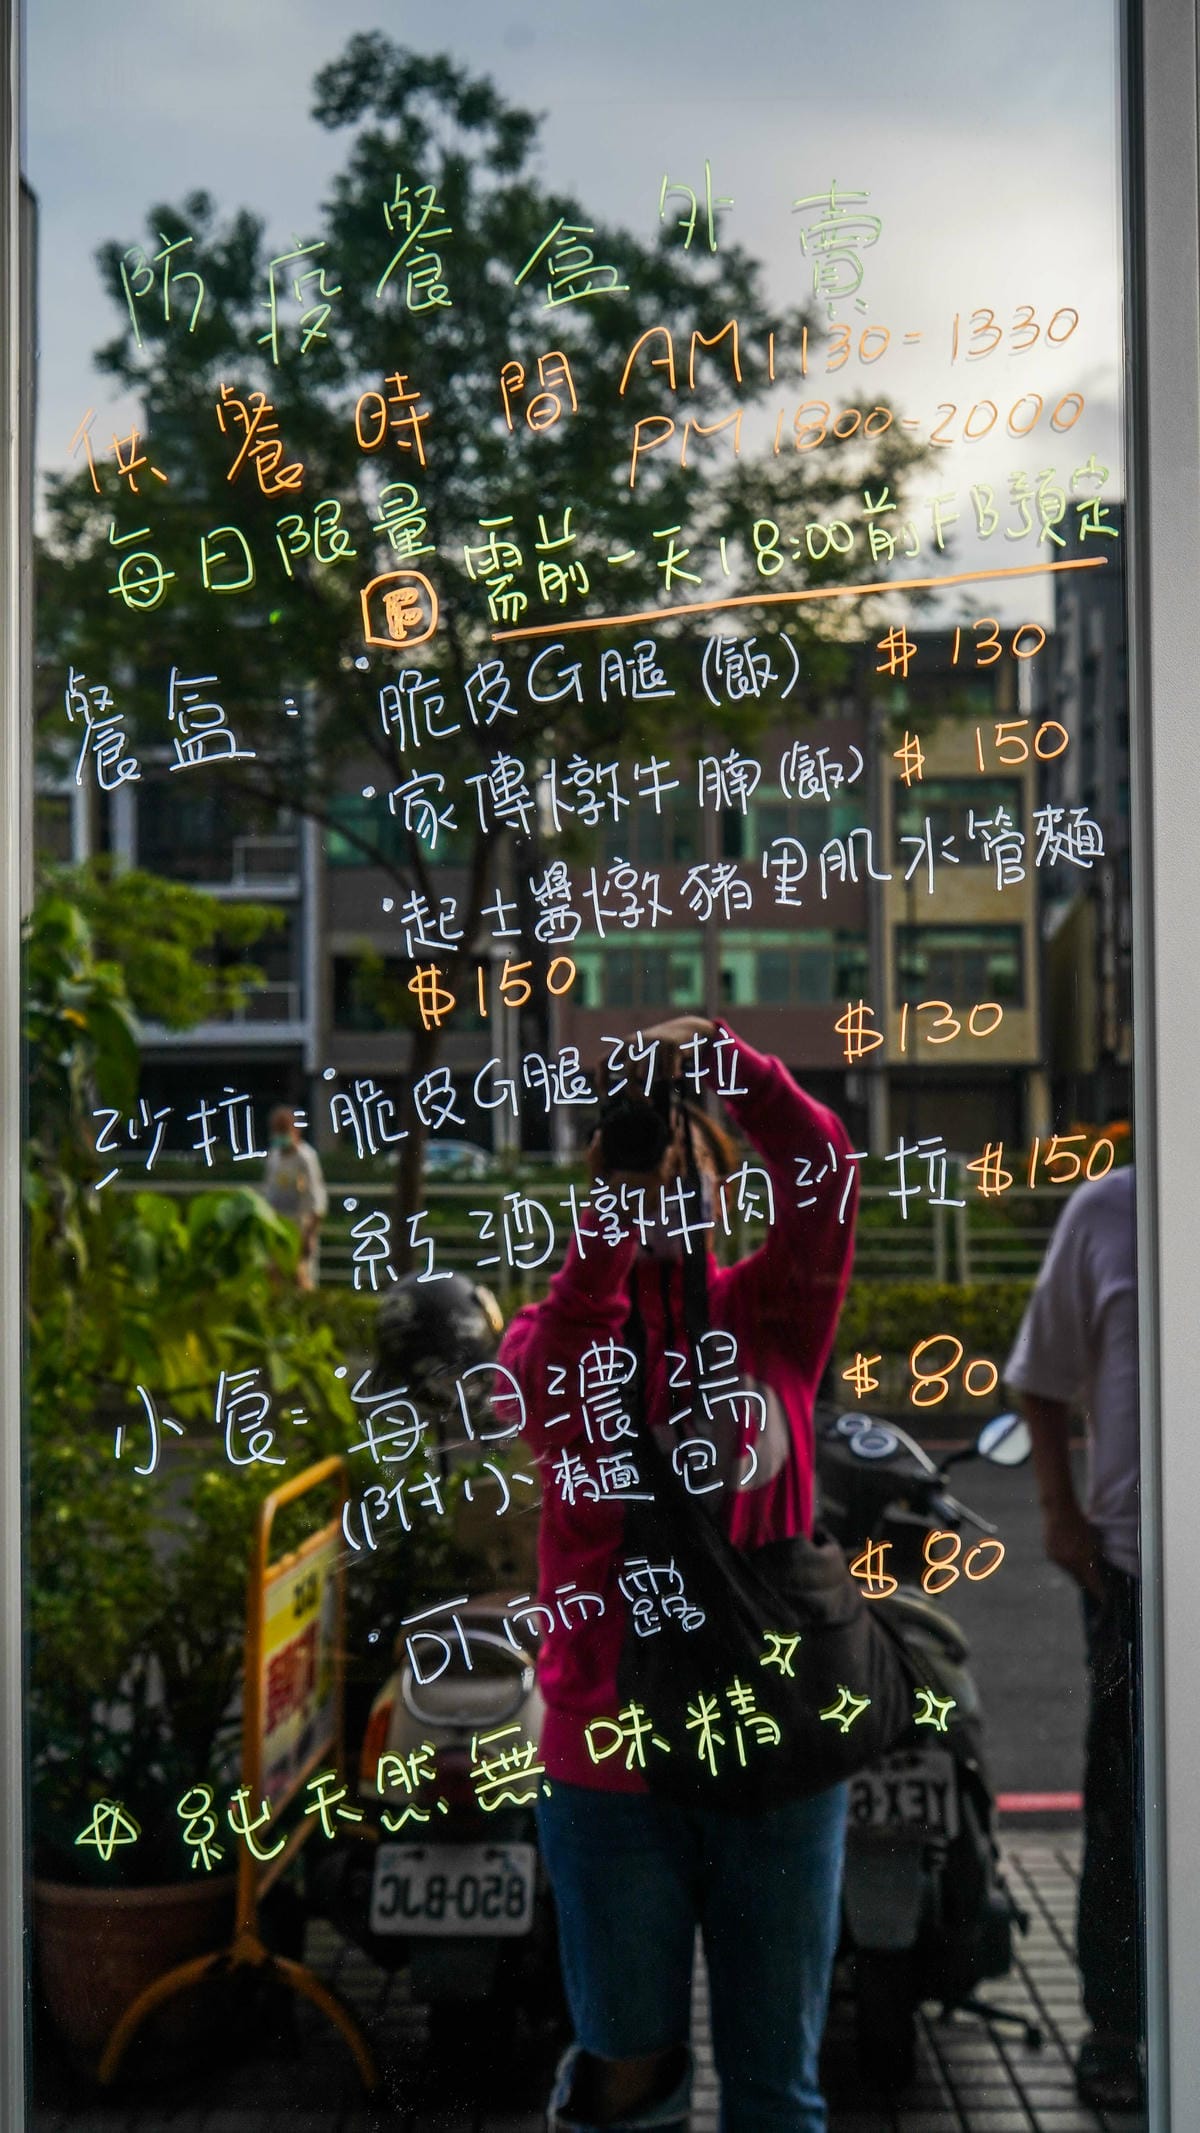 防疫餐盒外賣
供餐時間 AM 1130-1330
PM 1800-2000
每日限量 需前一天18:00前FB預定
F
餐盒: ·脆皮G腿(飯) $130
·家傳燉牛腩(飯) $150
·起士醬燉豬里肌水管麵
$150
沙拉: ·脆皮G腿沙拉 $130
·紅酒燉牛肉沙拉 $150
小食: ·每日濃湯 $80
(附小麵包)
·可麗露 $80
☆純天然無味精
850-BJC
YEX-6